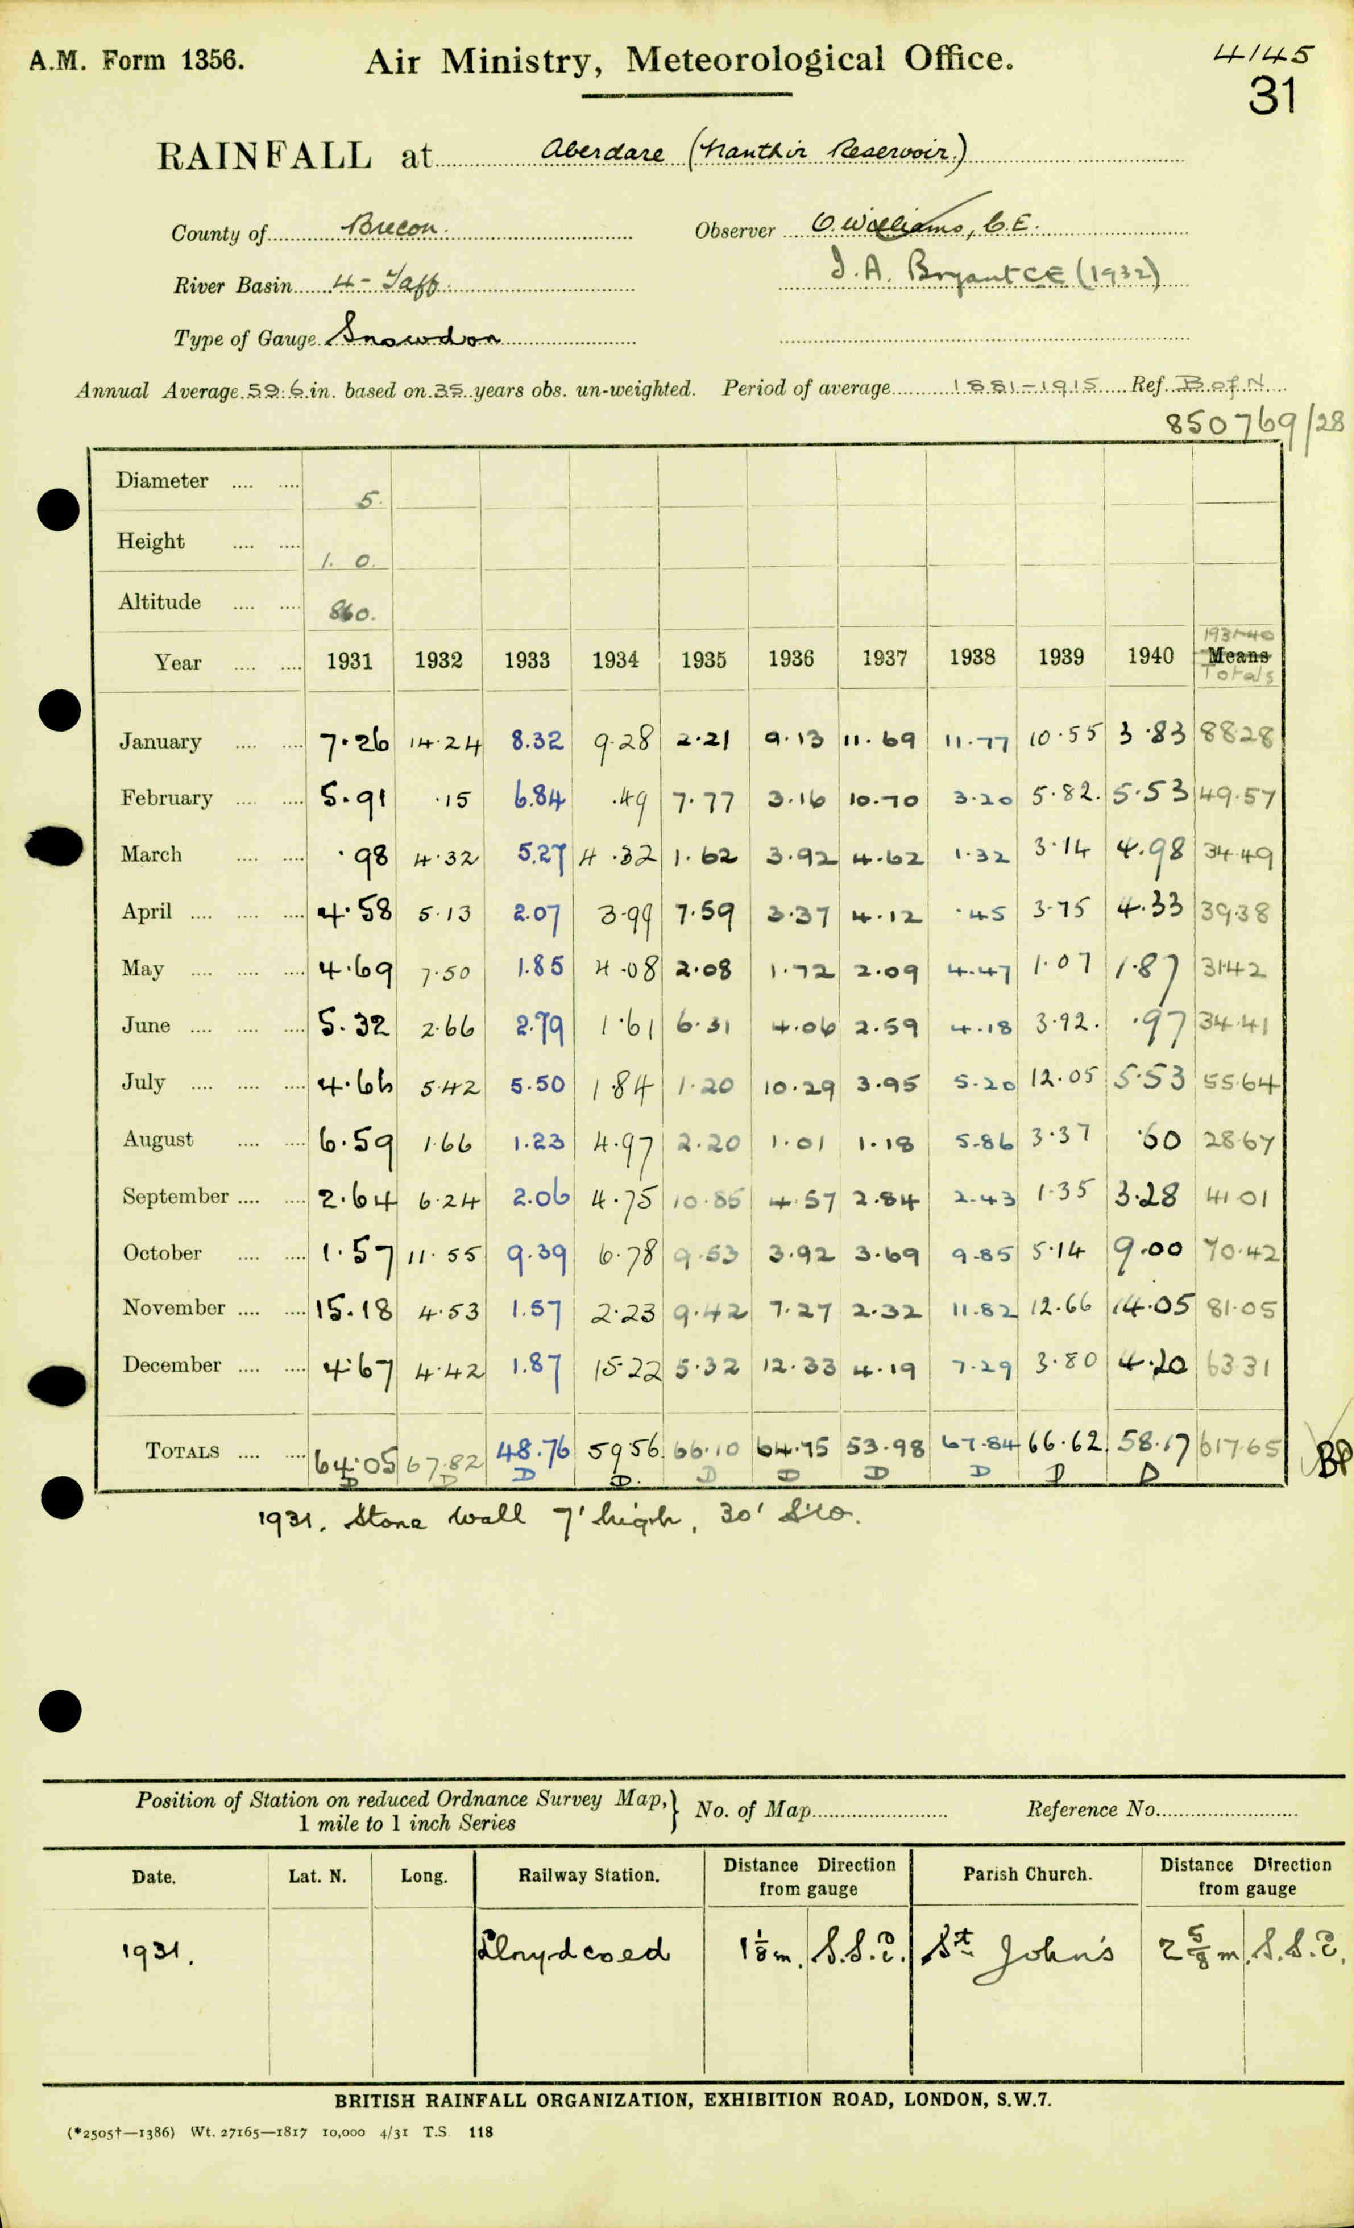 A.M. Form 1356. Air Ministry, Meteorological Office. 4145
31
RAINFALL at Aberdare (Nanthir Reservoir)
County of Brecon. Observer O. Williams, C.E.
River Basin 4 - Taff. I. A. Bryant CE (1932)
Type of Gauge Snowdon
Annual Average 59.6 in. based on 35 years obs. un-weighted. Period of average 1881-1915 Ref. B of N
850769/28
Diameter 5.
Height 1. 0.
Altitude 860.
1931-40
Year 1931 1932 1933 1934 1935 1936 1937 1938 1939 1940 Means
Totals
January 7.26 14.24 8.32 9.28 2.21 9.13 11.69 11.77 10.55 3.83 88.28
February 5.91 .15 6.84 .49 7.77 3.16 10.70 3.20 5.82. 5.53 49.57
March .98 4.32 5.27 4.32 1.62 3.92 4.62 1.32 3.14 4.98 34.49
April 4.58 5.13 2.07 3.99 7.59 3.37 4.12 .45 3.75 4.33 39.38
May 4.69 7.50 1.85 4.08 2.08 1.72 2.09 4.47 1.07 1.87 31.42
June 5.32 2.66 2.79 1.61 6.31 4.06 2.59 4.18 3.92. .97 34.41
July 4.66 5.42 5.50 1.84 1.20 10.29 3.95 5.20 12.05 5.53 55.64
August 6.59 1.66 1.23 4.97 2.20 1.01 1.18 5.86 3.37 .60 28.67
September 2.64 6.24 2.06 4.75 10.85 4.57 2.84 2.43 1.35 3.28 41.01
October 1.57 11.55 9.39 6.78 9.53 3.92 3.69 9.85 5.14 9.00 70.42
November 15.18 4.53 1.57 2.23 9.42 7.27 2.32 11.82 12.66 14.05 81.05
December 4.67 4.42 1.87 15.22 5.32 12.33 4.19 7.29 3.80 4.20 63.31
TOTALS 64.05 67.82 48.76 59.56 66.10 64.75 53.98 67.84 66.62 58.17 617.65
D D D D. D D D D D D BP
1931. Stone wall 7' high, 30' SW.
Position of Station on reduced Ordnance Survey Map, } No. of Map Reference No.
1 mile to 1 inch Series
Date. Lat. N. Long. Railway Station. Distance Direction from gauge Parish Church. Distance Direction from gauge
1931. Llwydcoed 1 1/8 m. S.S.E. St John's 2 5/8 m. S.S.E.
BRITISH RAINFALL ORGANIZATION, EXHIBITION ROAD, LONDON, S.W.7.
(*2505†—1386) Wt. 27165—1817 10,000 4/31 T.S. 118